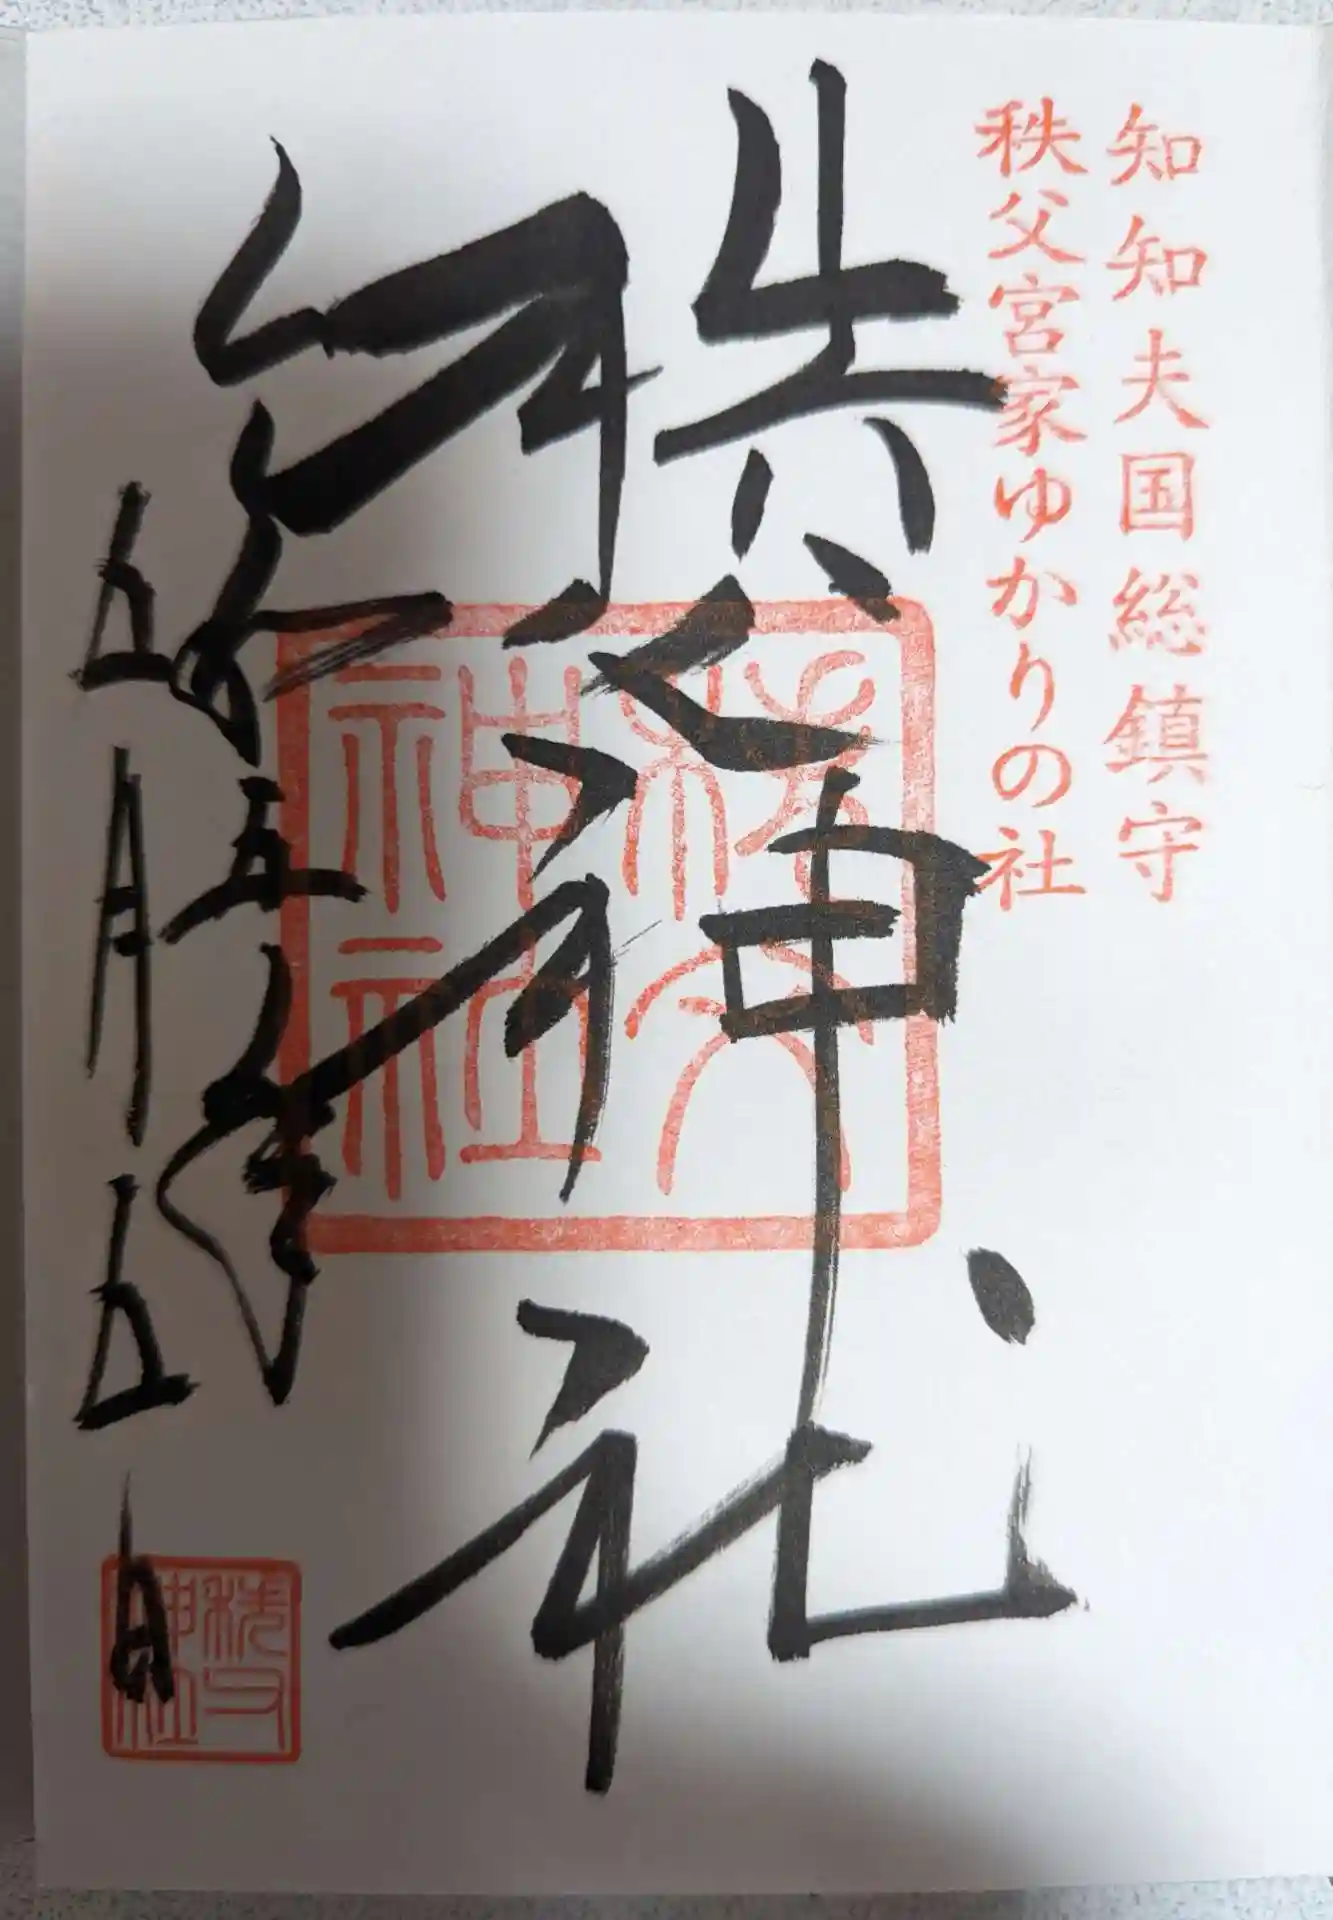 知知夫国総鎮守
秩父宮家ゆかりの社
秩父神社
秩父神社
令和五年
五月五日
秩父神社